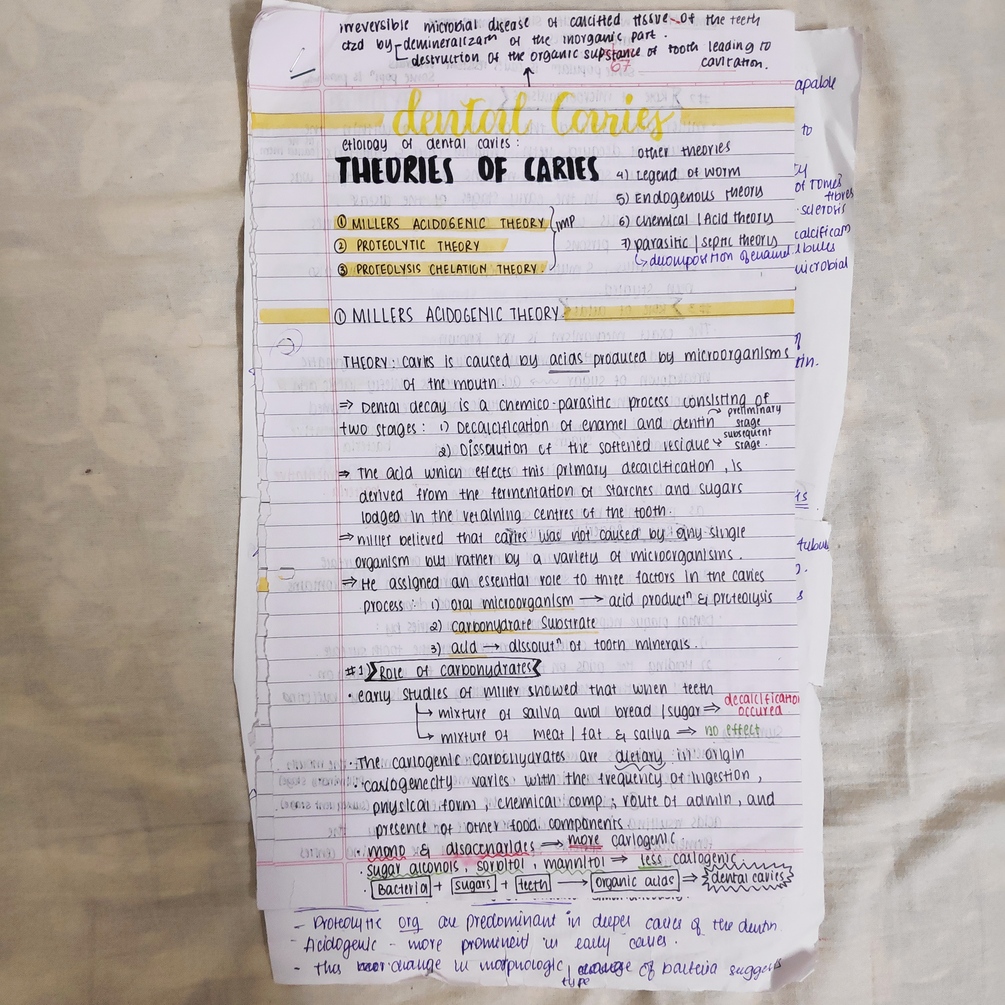 irreversible microbial disease of calcified tissue of the teeth
ctzd by demineralizatn of the inorganic part.
destruction of the organic substance of tooth leading to
cavitation.
67
dental Carries
etiology of dental caries:
THEORIES OF CARIES
other theories
4) Legend of worm
5) Endogenous theory
① MILLERS ACIDOGENIC THEORY
② PROTEOLYTIC THEORY
③ PROTEOLYSIS CHELATION THEORY
IMP
6) chemical | Acid theory
7) parasitic | septic theory
decomposition of enamel
① MILLERS ACIDOGENIC THEORY
THEORY: caries is caused by acids produced by microorganisms
of the mouth.
⇒ Dental decay is a chemico-parasitic process consisting of
two stages: 1) Decalcification of enamel and dentin → preliminary stage
2) Dissolution of the softened residue → subsequent stage.
⇒ The acid which effects this primary decalcification, is
derived from the fermentation of starches and sugars
lodged in the retaining centres of the tooth.
⇒ miller believed that caries was not caused by any single
organism but rather by a variety of microorganisms.
⇒ He assigned an essential role to three factors in the caries
process: 1) oral microorganism → acid productⁿ & proteolysis
2) carbohydrate Substrate
3) acid → dissolutⁿ of tooth minerals.
#1) Role of carbohydrates
• early studies of miller showed that when teeth
→ mixture of saliva and bread | sugar ⇒ decalcification occured
→ mixture of meat | fat & saliva ⇒ no effect
• The cariogenic carbohydrates are dietary in origin
• cariogenecity varies with the frequency of ingestion,
physical form, chemical comp; route of admin, and
presence of other food components
• mono & disaccharides → more cariogenic.
• sugar alcohols, sorbitol, mannitol → less cariogenic.
• Bacteria + sugars + teeth → organic acids → dental caries
apable
to
of Tomes
fibres
sclerosis
calcificatn
tubules
microbial
tin.
tubul
- Proteolytic org are predominant in deeper caries of the dentin
- Acidogenic - more prominent in early caries.
- this change in morphologic type | change of bacteria suggests